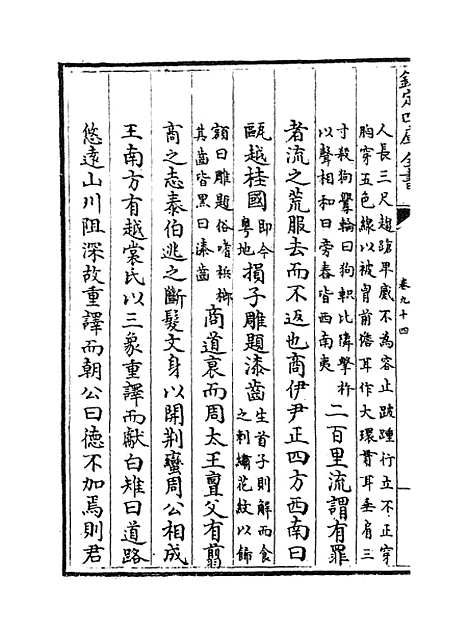 欽定四庫全書
卷九十四
人長三尺趫蹌卑戚不為容止跂踵行立不正穿
胸穿五色線以被胷前儋耳作大環貫耳垂肩三
寸殺狗擊輪曰狗軹比隣擊柝
以聲相和曰旁舂皆西南夷
二百里流謂有罪
者流之荒服去而不返也商伊尹正四方西南曰
甌越桂國
即今
粤地
損子雕題漆齒
生首子則解而食
之刺繡花紋以飾
額曰雕題俗嗜梹榔
其齒皆黑曰漆齒
商道衰而周太王亶父有翦
商之志泰伯逃之斷髮文身以開荆蠻周公相成
王南方有越裳氏以三象重譯而獻白雉曰道路
悠遠山川阻深故重譯而朝公曰德不加焉則君